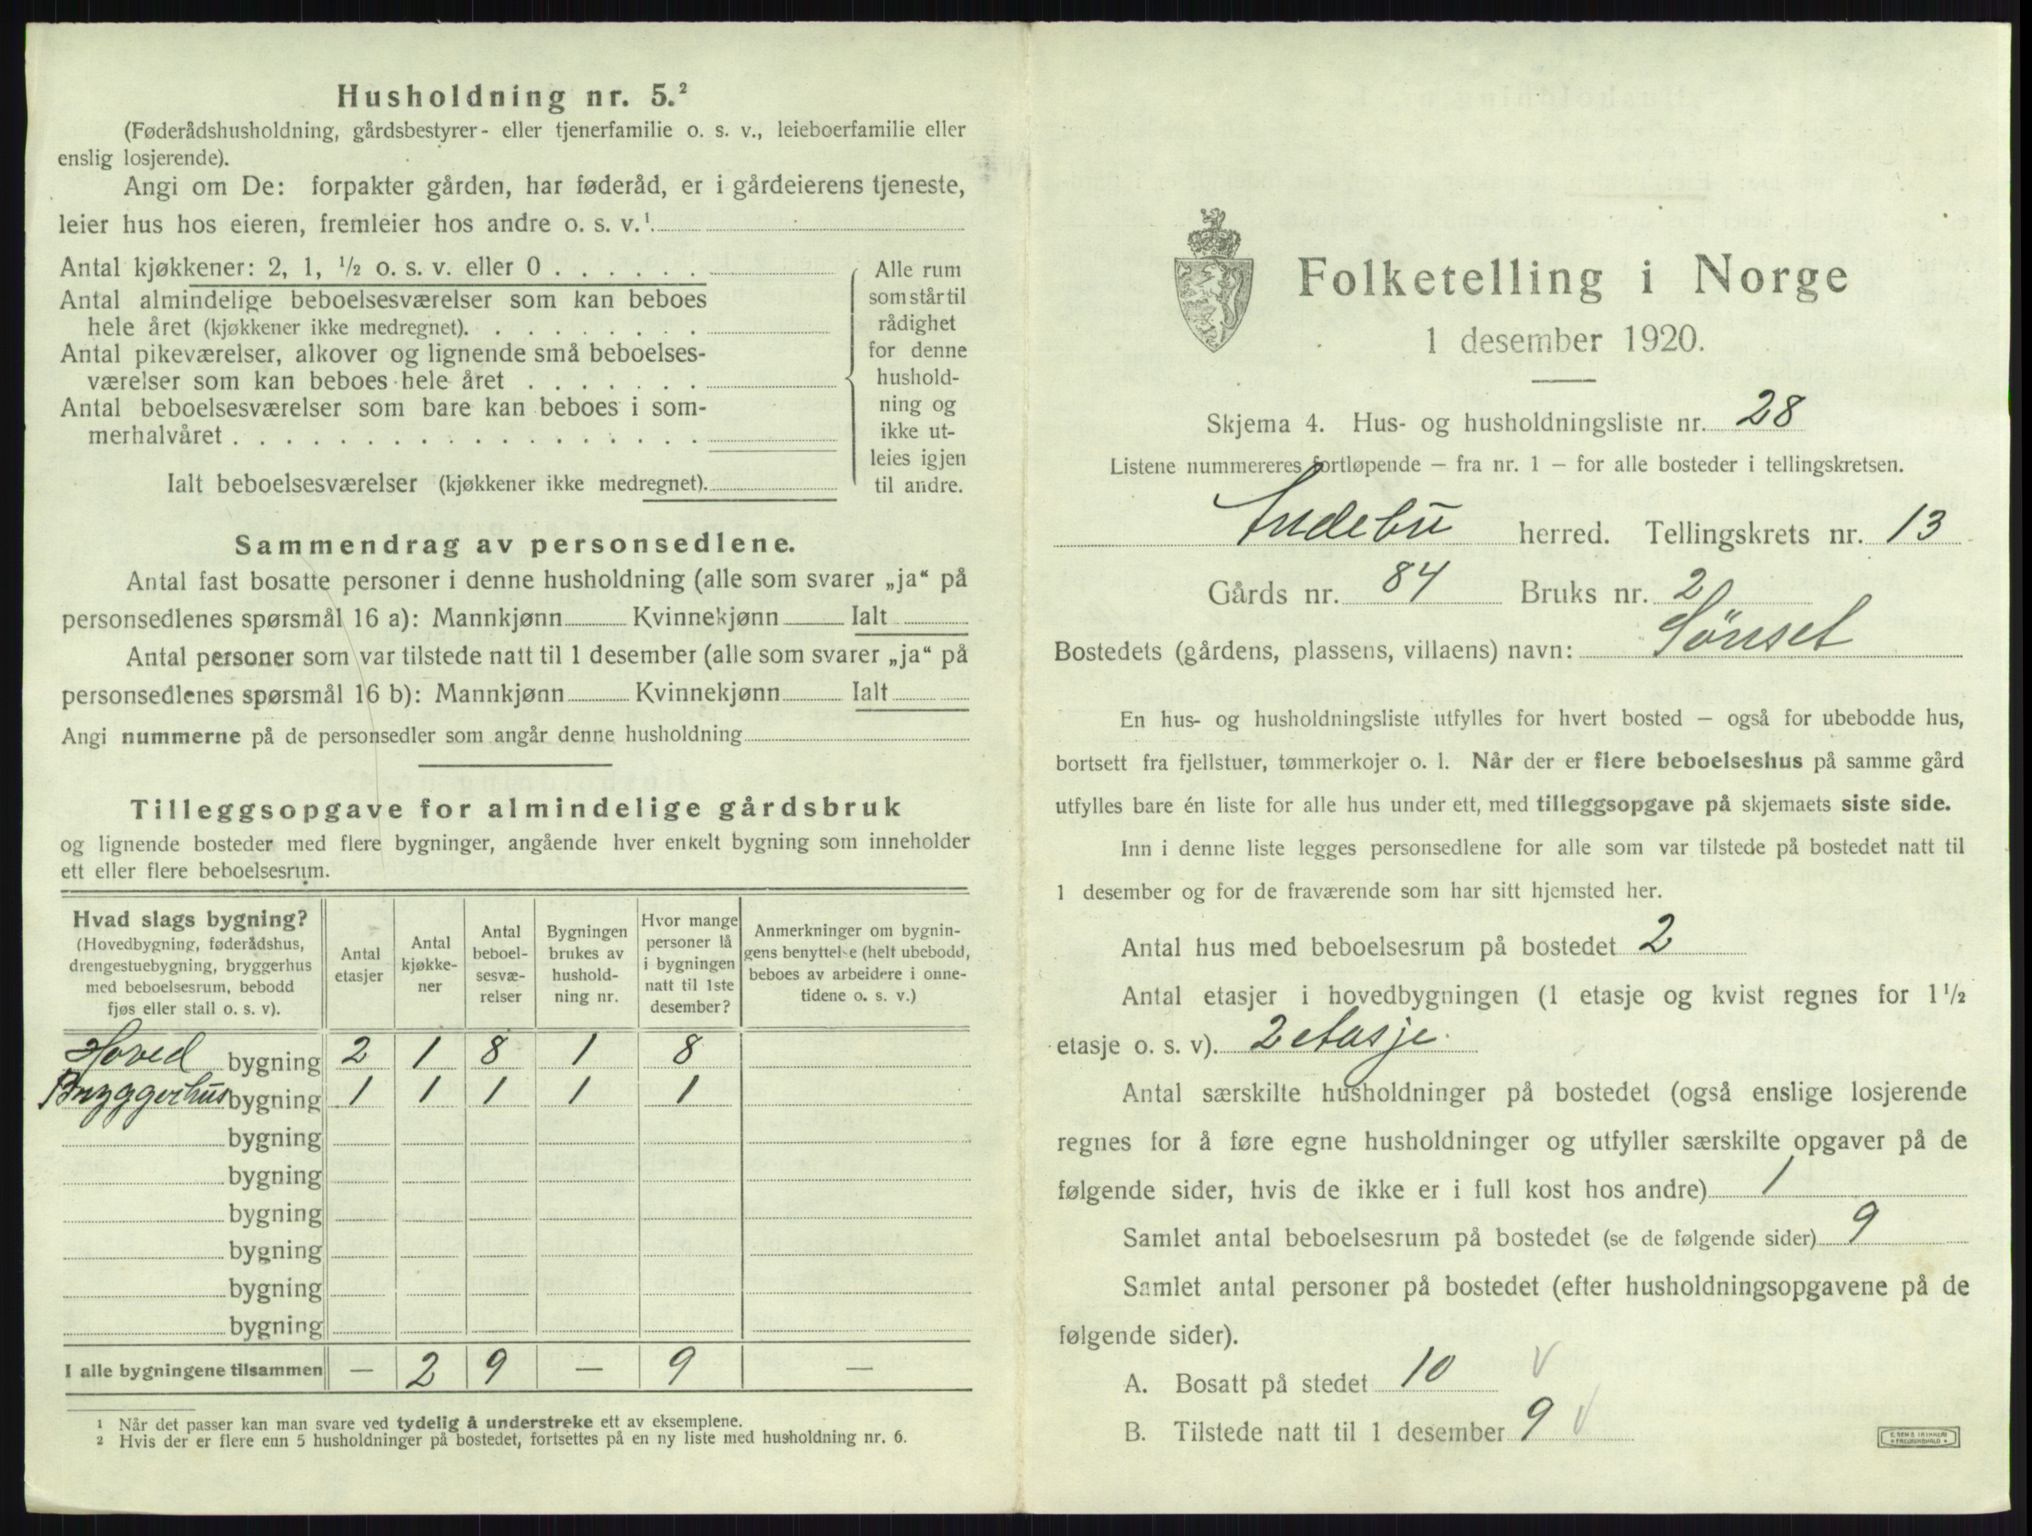 Husholdning nr. 5.²
(Føderådshusholdning, gårdsbestyrer- eller tjenerfamilie o. s. v., leieboerfamilie eller
enslig losjerende).
Angi om De: forpakter gården, har føderåd, er i gårdeierens tjeneste,
leier hus hos eieren, fremleier hos andre o. s. v.¹
Antal kjøkkener: 2, 1, ½ o. s. v. eller 0 . . . . . .
Antal almindelige beboelsesværelser som kan beboes
hele året (kjøkkener ikke medregnet). . . . . . . . .
Antal pikeværelser, alkover og lignende små beboelses-
værelser som kan beboes hele året . . . . . . .
Antal beboelsesværelser som bare kan beboes i som-
merhalvåret . . . . . . . . . . . . . . . . . .
Ialt beboelsesværelser (kjøkkener ikke medregnet).
Alle rum
som står til
rådighet
for denne
hushold-
ning og
ikke ut-
leies igjen
til andre.
Sammendrag av personsedlene.
Antal fast bosatte personer i denne husholdning (alle som svarer „ja“ på
personsedlenes spørsmål 16 a): Mannkjønn Kvinnekjønn Ialt
Antal personer som var tilstede natt til 1 desember (alle som svarer „ja“ på
personsedlenes spørsmål 16 b): Mannkjønn Kvinnekjønn Ialt
Angi nummerne på de personsedler som angår denne husholdning
Tilleggsopgave for almindelige gårdsbruk
og lignende bosteder med flere bygninger, angående hver enkelt bygning som inneholder
ett eller flere beboelsesrum.
Hvad slags bygning?
(Hovedbygning, føderådshus,
drengestuebygning, bryggerhus
med beboelsesrum, bebodd
fjøs eller stall o. s. v).
Antal
etasjer
Antal
kjøkke-
ner
Antal
beboel-
sesvæ-
relser
Bygningen
brukes av
hushold-
ning nr.
Hvor mange
personer lå
i bygningen
natt til 1ste
desember?
Anmerkninger om bygnin-
gens benyttelse (helt ubebodd,
beboes av arbeidere i onne-
tidene o. s. v.)
Hoved bygning 2 1 8 1 8
Bryggerhus bygning 1 1 1 1 1
bygning
bygning
bygning
bygning
bygning
bygning
I alle bygningene tilsammen — 2 9 — 9 —
¹ Når det passer kan man svare ved tydelig å understreke ett av eksemplene.
² Hvis der er flere enn 5 husholdninger på bostedet, fortsettes på en ny liste med husholdning nr. 6.
Folketelling i Norge
1 desember 1920.
Skjema 4. Hus- og husholdningsliste nr. 28
Listene nummereres fortløpende — fra nr. 1 — for alle bosteder i tellingskretsen.
Andebu herred. Tellingskrets nr. 13
Gårds nr. 84 Bruks nr. 2
Bostedets (gårdens, plassens, villaens) navn: Sønset
En hus- og husholdningsliste utfylles for hvert bosted — også for ubebodde hus,
bortsett fra fjellstuer, tømmerkojer o. l. Når der er flere beboelseshus på samme gård
utfylles bare én liste for alle hus under ett, med tilleggsopgave på skjemaets siste side.
Inn i denne liste legges personsedlene for alle som var tilstede på bostedet natt til
1 desember og for de fraværende som har sitt hjemsted her.
Antal hus med beboelsesrum på bostedet 2
Antal etasjer i hovedbygningen (1 etasje og kvist regnes for 1½
etasje o. s. v). 2 etasje.
Antal særskilte husholdninger på bostedet (også enslige losjerende
regnes for å føre egne husholdninger og utfyller særskilte opgaver på de
følgende sider, hvis de ikke er i full kost hos andre) 1
Samlet antal beboelsesrum på bostedet (se de følgende sider) 9
Samlet antal personer på bostedet (efter husholdningsopgavene på de
følgende sider).
A. Bosatt på stedet 10 √
B. Tilstede natt til 1 desember 9 √